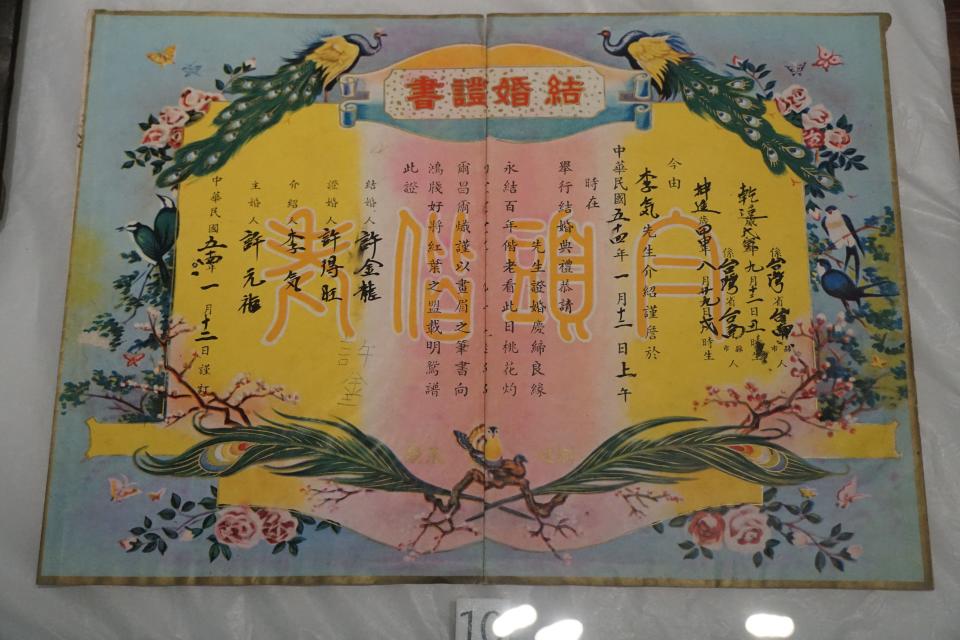 結婚證書
係台灣省台南縣市人
乾造 九月十二日丑時生
係台灣省台南縣市人
坤造 八月廿九日戌時生
今由
李氣先生介紹謹詹於
中華民國五十四年一月十二日上午
時在
舉行結婚典禮恭請
先生證婚慶締良緣
永結百年偕老看此日桃花灼
爾昌爾熾謹以畫眉之筆書向
鴻牋好將紅葉之盟載明鴛譜
此證
結婚人許金龍
證婚人許得旺
介紹人李氣
主婚人許元福
中華民國五四年一月十二日謹訂
白頭偕老
許金
10